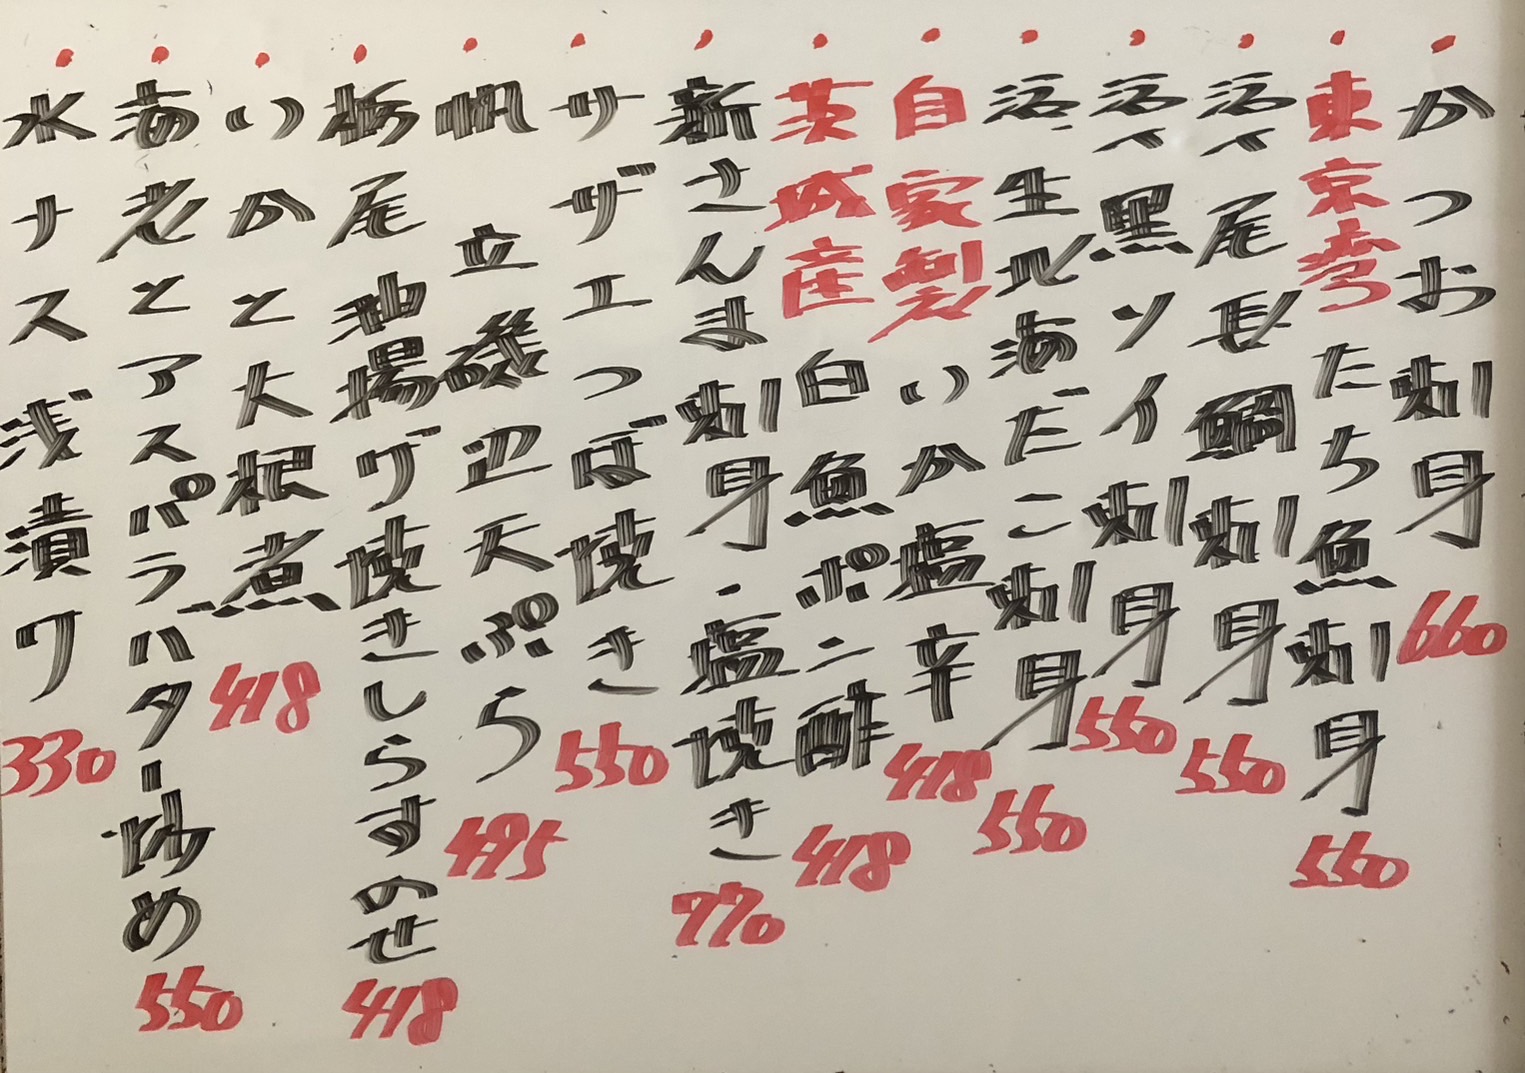 かつお刺身 660
東京湾たち魚刺身 550
活〆尾長鯛刺身 550
活〆黒ソイ刺身 550
活生北海だこ刺身 550
自家製いか塩辛 418
茨城産白魚ポン酢 418
新さんま刺身・塩焼き 770
サザエつぼ焼き 550
帆立磯辺天ぷら 495
栃尾油揚げ焼きしらすのせ 418
いかと大根煮 418
海老とアスパラバター炒め 550
水ナス浅漬ケ 330